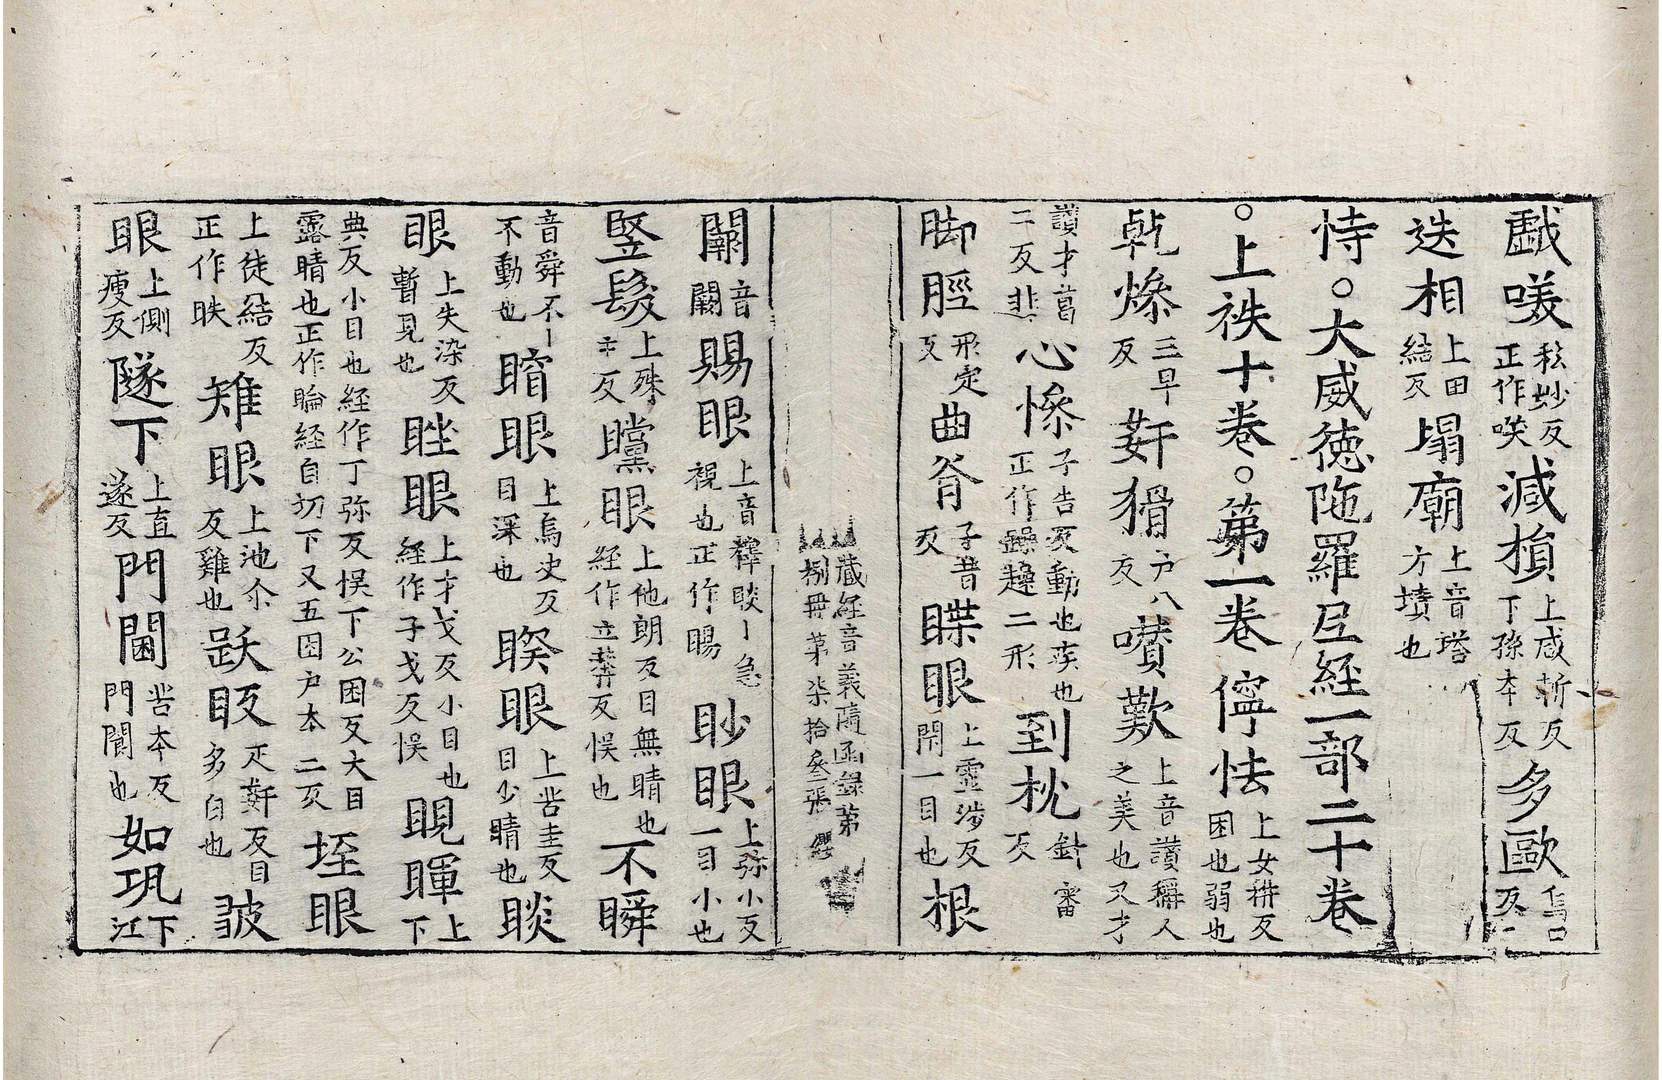 戱唉私妙反正作咲減損上咸斩反下孫本反多歐烏口反二
迭相上田結反塌廟上音塔方墳也
恃○大威徳陁羅尼経一部二十卷
○上袟十卷○第一卷儜怯上女耕反困也弱也
乹燥三早反姧猾戸八反嘳歎上音讃稱人之美也又才
讃才葛二反非心懆子告反動也疾也正作躁趮二形到枕針審反
脚脛形定反曲脊子昔反䁋眼上霊渉反閇一目也根
藏経音義隨函録第捌冊第柒拾叄張
闌音闌賜眼上音釋睒丨急視也正作睗眇眼上弥小反一目小也
竪髮上殊主反矘眼上他朗反目無睛也経作立莽反悮也不瞬
音舜不丨不動也䁯眼上烏決反目深也睽眼上苦圭反目少睛也睒
眼上失染反暫見也睉眼上才戈反小目也経作子戈反悮睍睴上下
典反小目也経作丁弥反悮下公困反大目露睛也正作睔経自切下又五困戸本二反垤眼
上徒結反正作眣雉眼上池尒反雞也䟦眅疋姧反目多白也皱
眼上側瘦反隧下上直遂反門閫苦本反門閬也如巩下江